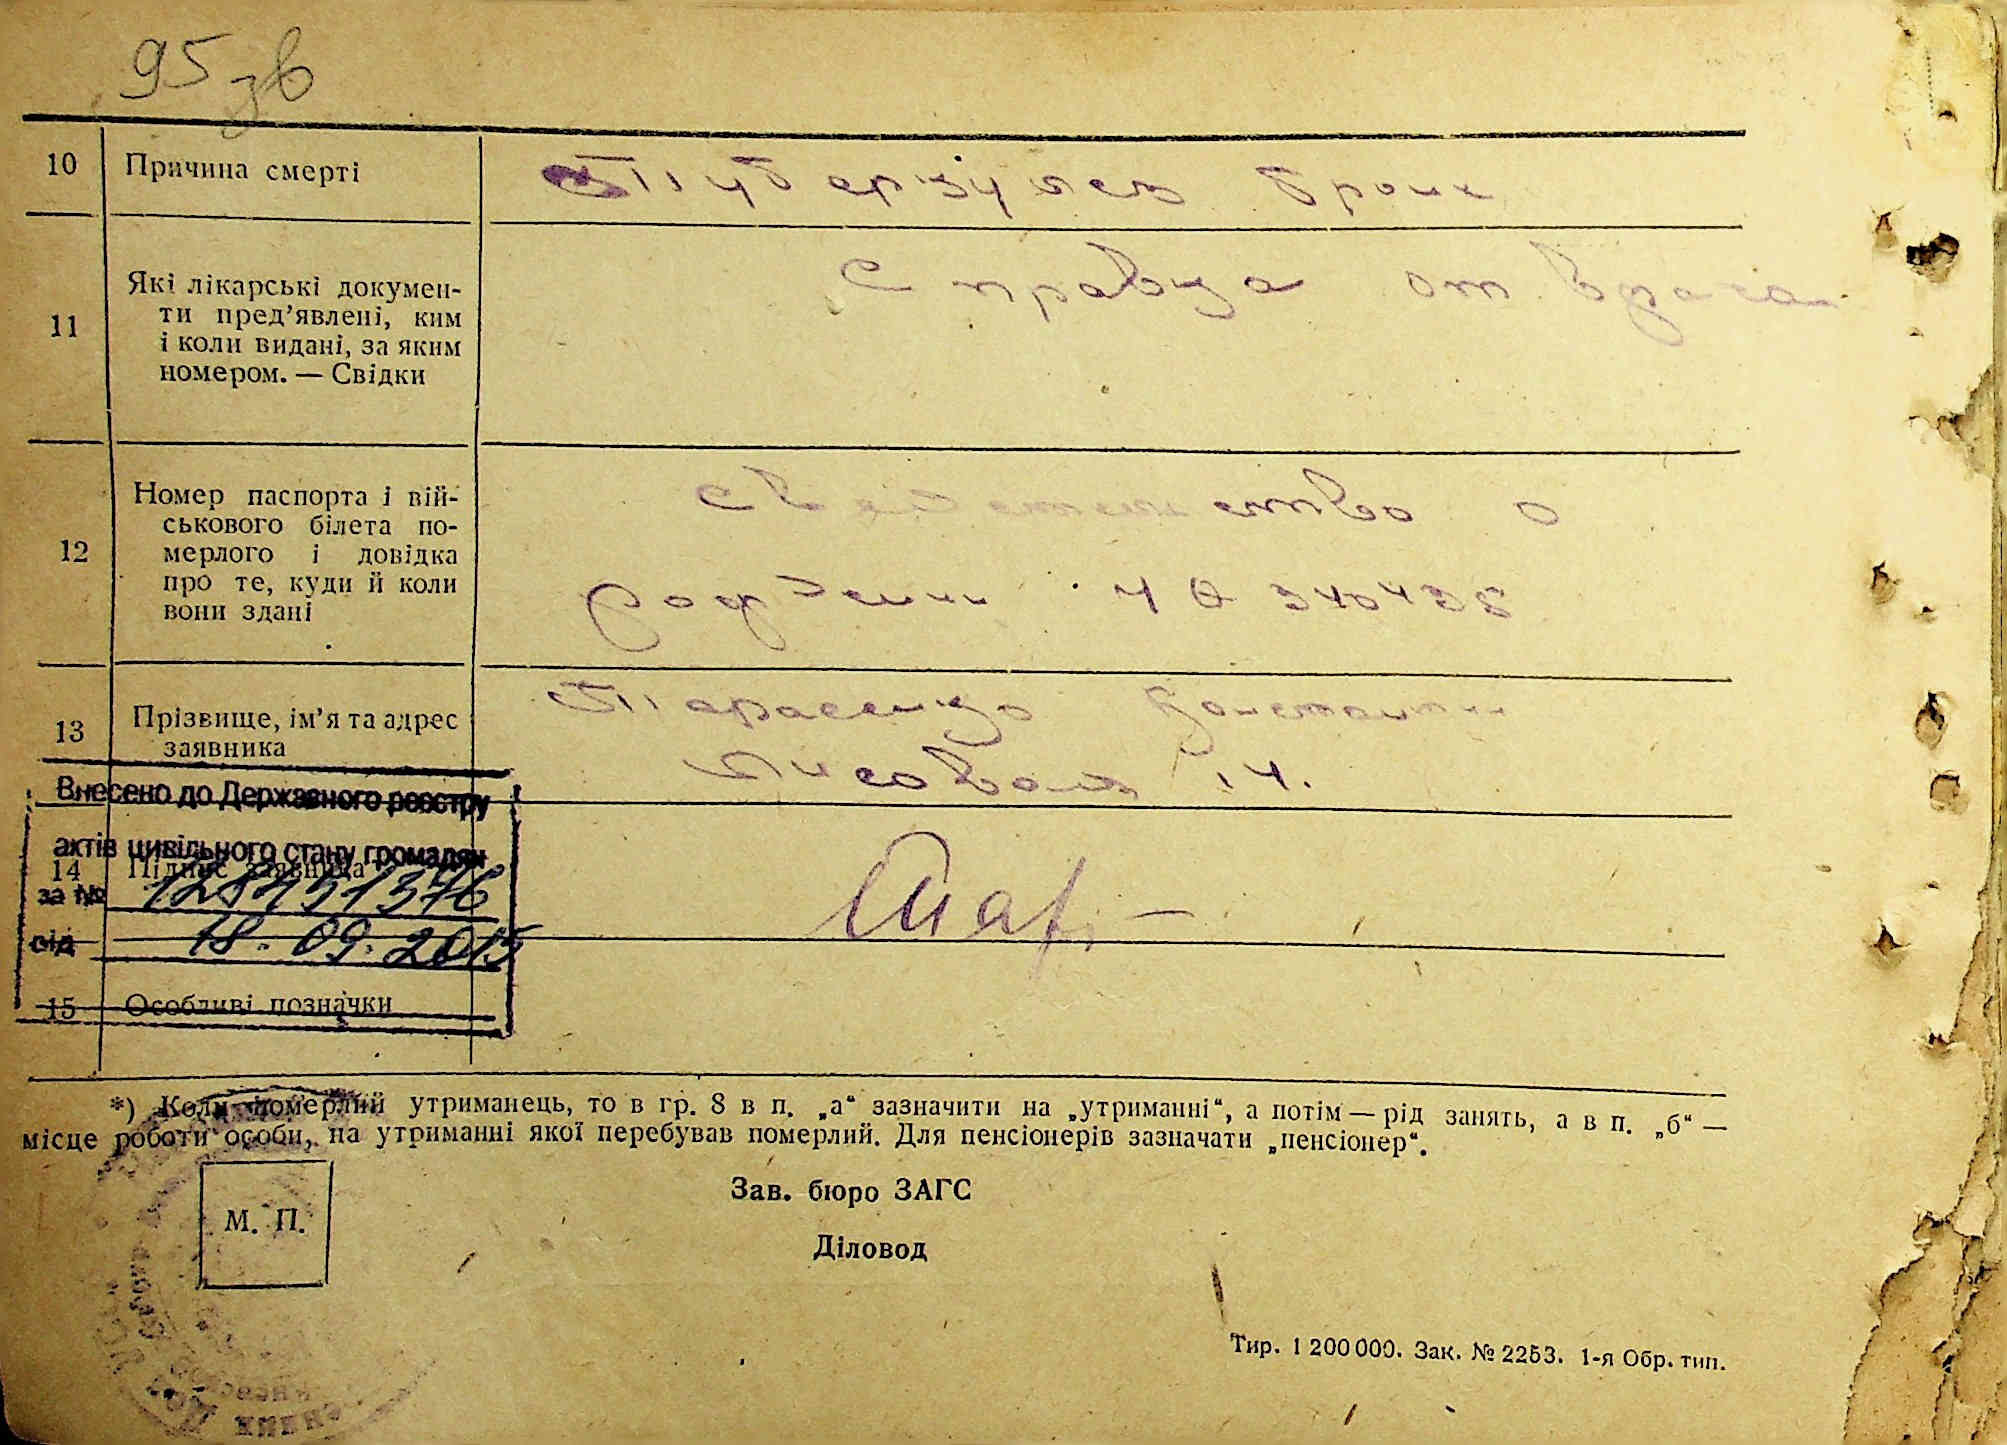 95 зв
10 Причина смерті Туберкулез бронх
11 Які лікарські документи Справка от врача
ти пред'явлені, ким
і коли видані, за яким
номером. — Свідки
12 Номер паспорта і вій- Свидетельство о
ськового білета по-
мерлого і довідка
про те, куди й коли рождении 340435
вони здані
13 Прізвище, ім'я та адрес Тарасенко Константин
заявника Лисовая 14.
Внесено до Державного реєстру
актів цивільного стану громадян
14 Підпис заявника
за №
від 18.09.2015
15 Особливі позначки
*) Коли померлий утриманець, то в гр. 8 в п. „а“ зазначити на „утриманні“, а потім — рід занять, а в п. „б“ —
місце роботи особи, на утриманні якої перебував померлий. Для пенсіонерів зазначати „пенсіонер“.
М. П.
Зав. бюро ЗАГС
Діловод
Тир. 1 200 000. Зак. № 2253. 1-я Обр. тип.